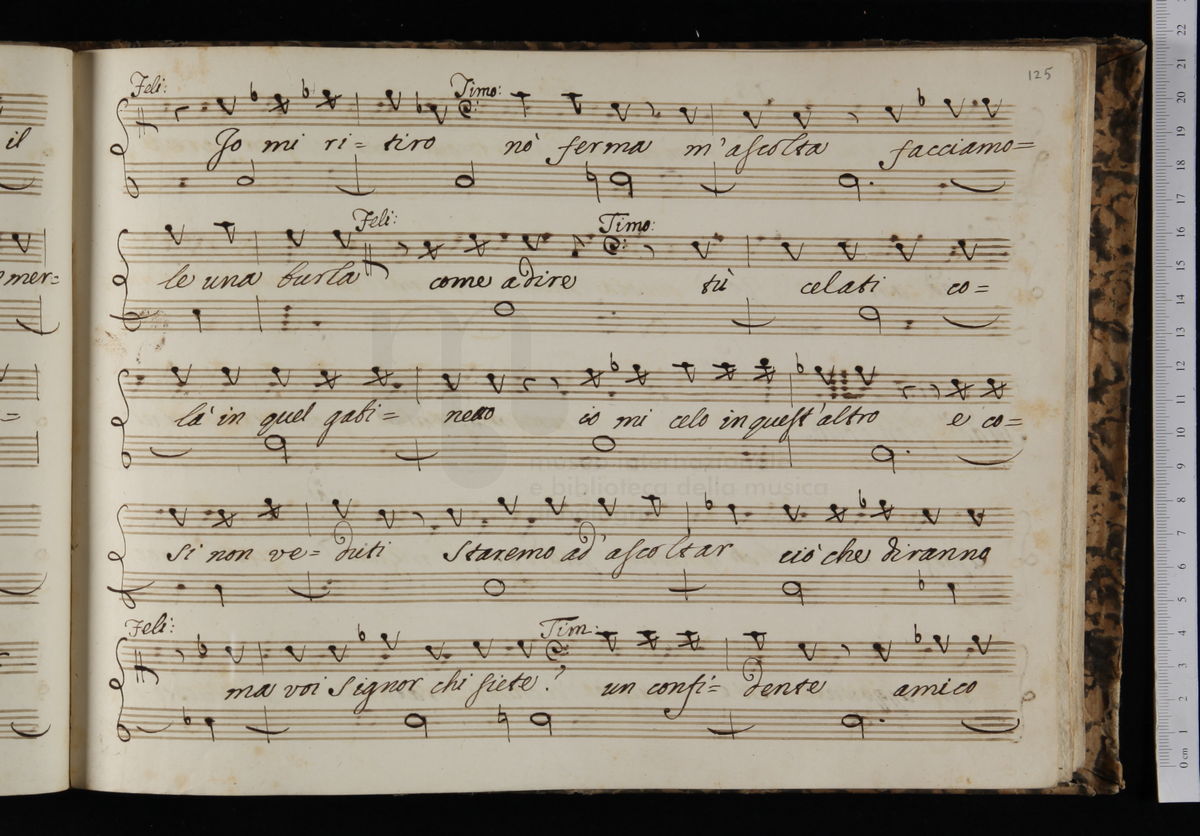 125
Feli: Timo:
il
Jo mi ri= tiro nò ferma m'ascolta facciamo=
Feli: Timo:
mer=
le una burla come adire tù celati co=
là in quel gabi= netto io mi celo in quest'altro e co=
si non ve= duti Staremo ad'ascoltar ciò che diranno
Feli: Tim:
ma voi Signor chi siete? un confi= dente amico
e biblioteca della musica
0 cm 1 2 3 4 5 6 7 8 9 10 11 12 13 14 15 16 17 18 19 20 21 22